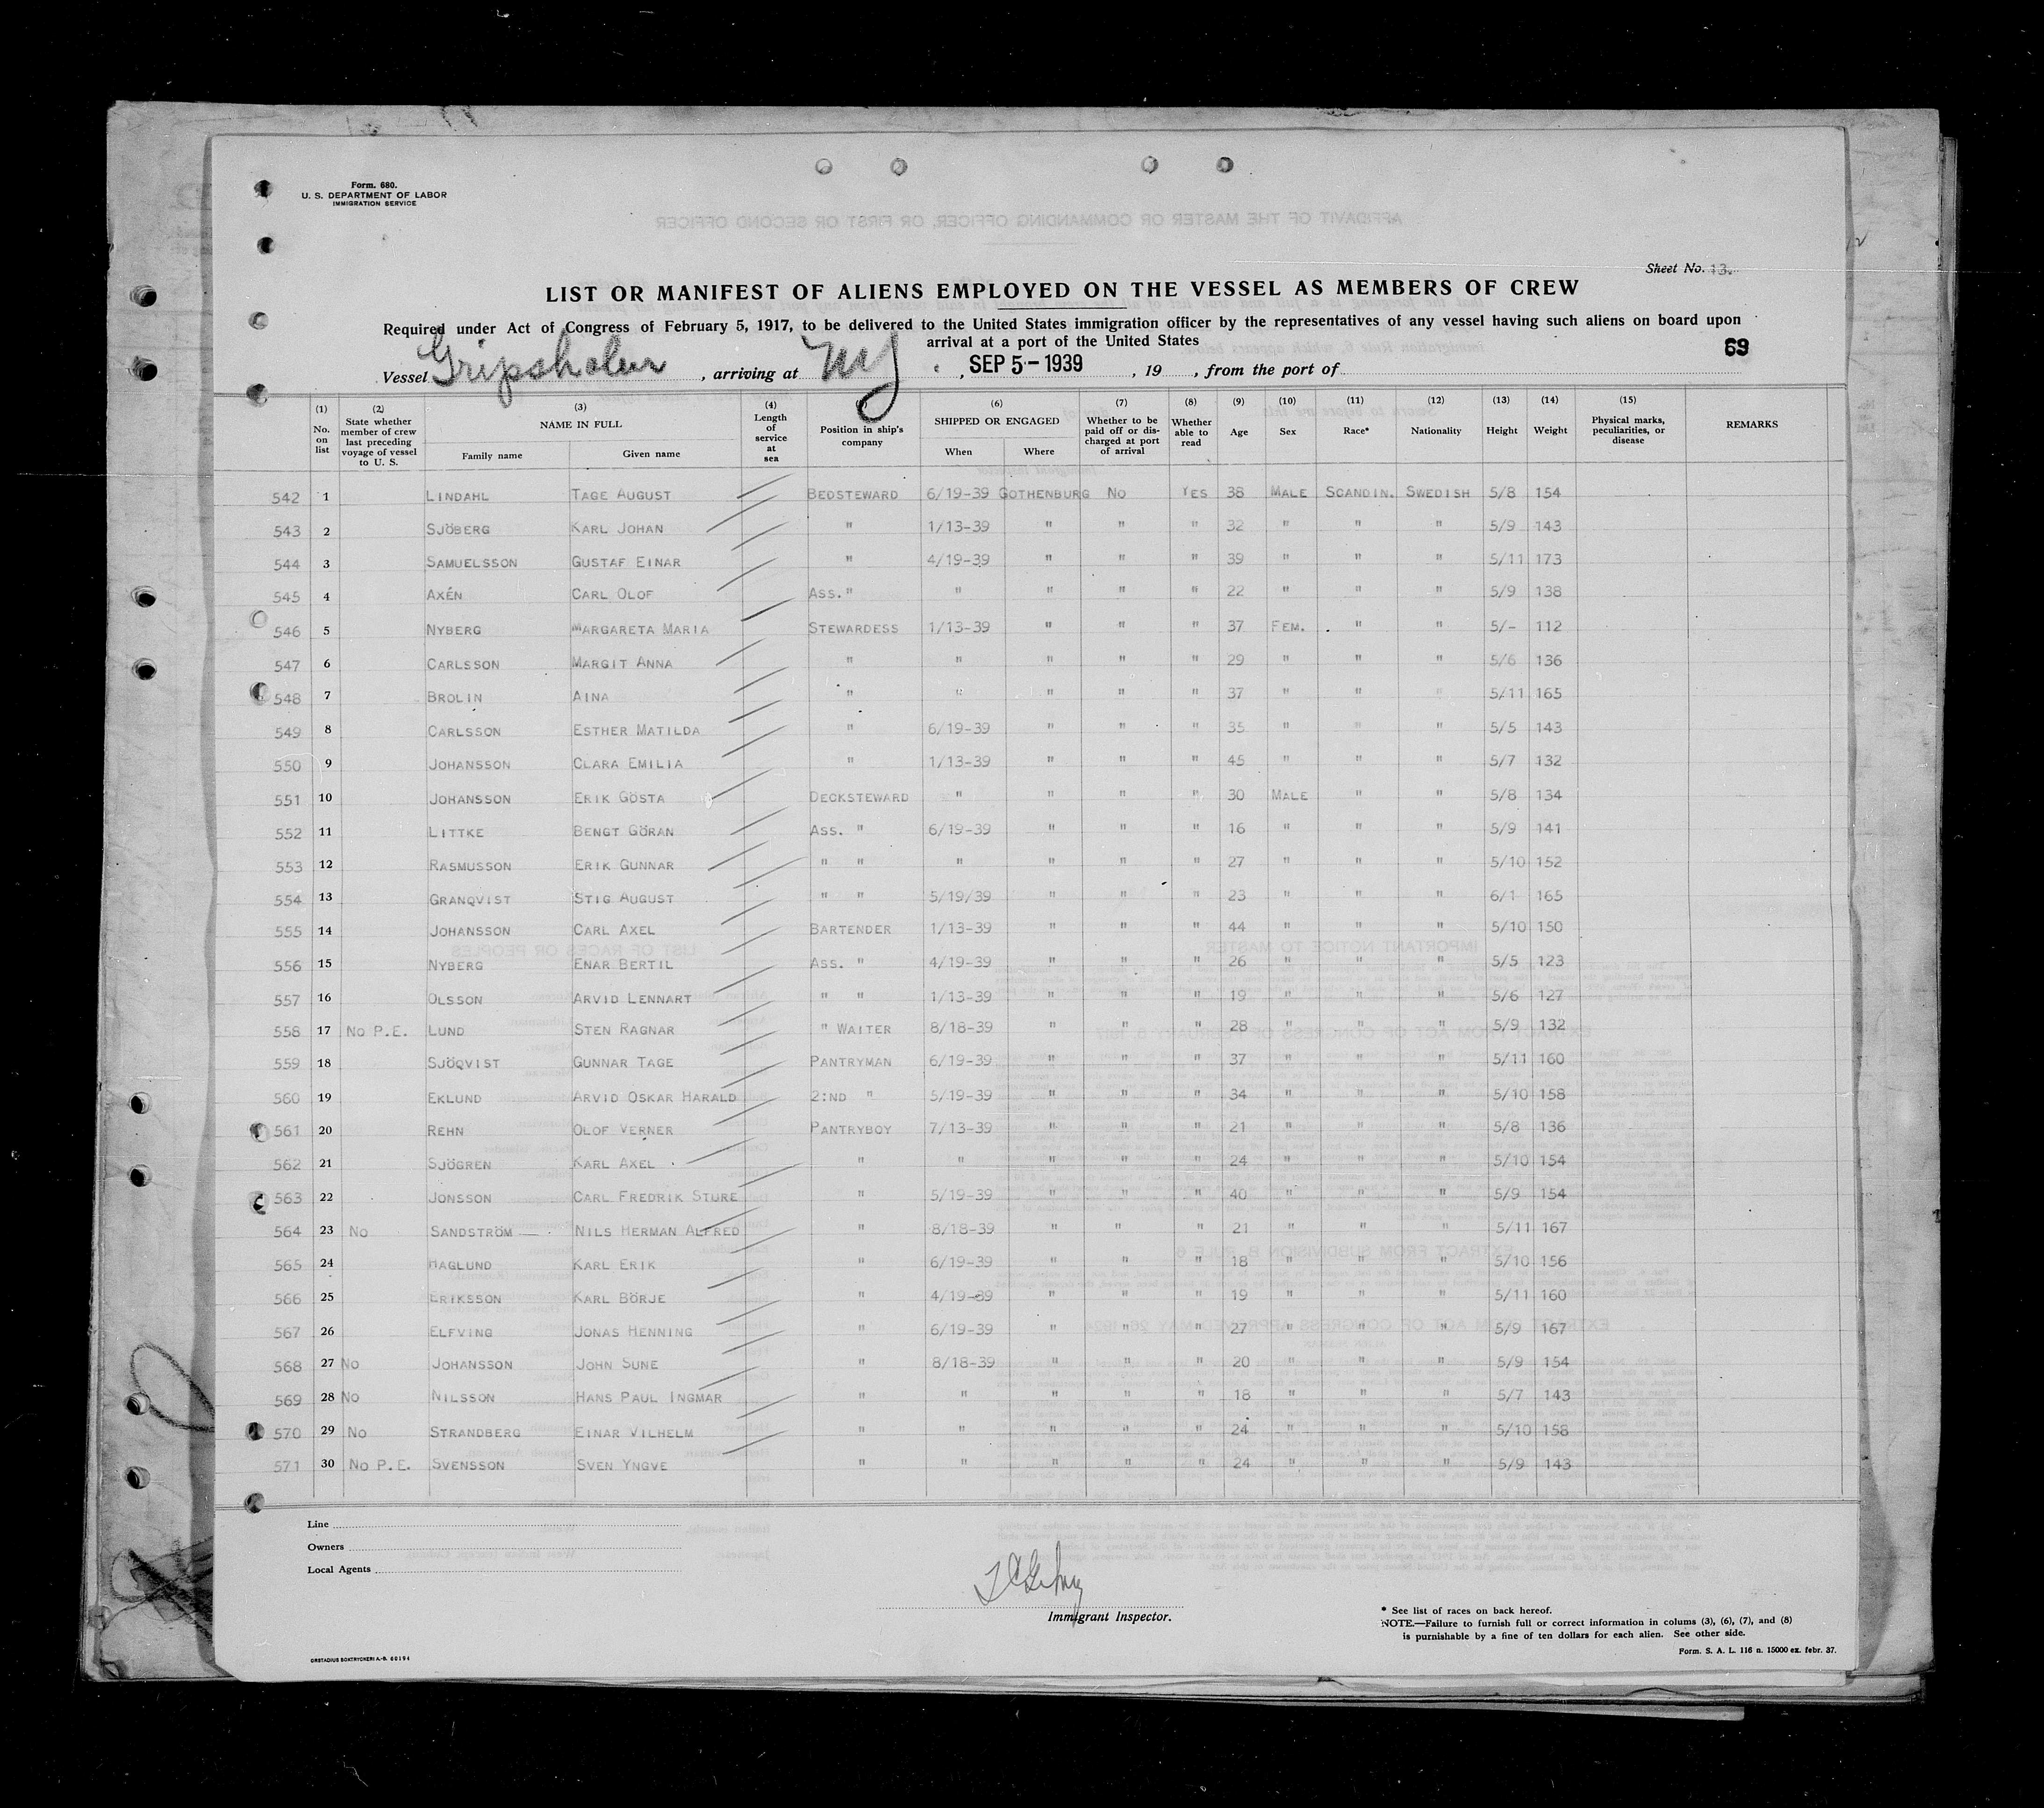 Form. 680.
U. S. DEPARTMENT OF LABOR
IMMIGRATION SERVICE
Sheet No. 13.
LIST OR MANIFEST OF ALIENS EMPLOYED ON THE VESSEL AS MEMBERS OF CREW
Required under Act of Congress of February 5, 1917, to be delivered to the United States immigration officer by the representatives of any vessel having such aliens on board upon
arrival at a port of the United States
69
Vessel Gripsholm, arriving at NY, SEP 5-1939, 19 , from the port of
(1) No. on list (2) State whether member of crew last preceding voyage of vessel to U. S. (3) NAME IN FULL Family name Given name (4) Length of service at sea (5) Position in ship's company (6) SHIPPED OR ENGAGED When Where (7) Whether to be paid off or discharged at port of arrival (8) Whether able to read (9) Age (10) Sex (11) Race* (12) Nationality (13) Height (14) Weight (15) Physical marks, peculiarities, or disease REMARKS
542 1 LINDAHL TAGE AUGUST BEDSTEWARD 6/19-39 GOTHENBURG NO YES 38 MALE SCANDIN. SWEDISH 5/8 154
543 2 SJÖBERG KARL JOHAN " 1/13-39 " " " 32 " " " 5/9 143
544 3 SAMUELSSON GUSTAF EINAR " 4/19-39 " " " 39 " " " 5/11 173
545 4 AXÉN CARL OLOF ASS. " " " " " 22 " " " 5/9 138
546 5 NYBERG MARGARETA MARIA STEWARDESS 1/13-39 " " " 37 FEM. " " 5/- 112
547 6 CARLSSON MARGIT ANNA " " " " " 29 " " " 5/6 136
548 7 BROLIN AINA " " " " " 37 " " " 5/11 165
549 8 CARLSSON ESTHER MATILDA " 6/19-39 " " " 35 " " " 5/5 143
550 9 JOHANSSON CLARA EMILIA " 1/13-39 " " " 45 " " " 5/7 132
551 10 JOHANSSON ERIK GÖSTA DECKSTEWARD " " " " 30 MALE " " 5/8 134
552 11 LITTKE BENGT GÖRAN ASS. " 6/19-39 " " " 16 " " " 5/9 141
553 12 RASMUSSON ERIK GUNNAR " " " " " " 27 " " " 5/10 152
554 13 GRANQVIST STIG AUGUST " " 5/19/39 " " " 23 " " " 6/1 165
555 14 JOHANSSON CARL AXEL BARTENDER 1/13-39 " " " 44 " " " 5/10 150
556 15 NYBERG ENAR BERTIL ASS. " 4/19-39 " " " 26 " " " 5/5 123
557 16 OLSSON ARVID LENNART " " 1/13-39 " " " 19 " " " 5/6 127
558 17 NO P.E. LUND STEN RAGNAR " WAITER 8/18-39 " " " 28 " " " 5/9 132
559 18 SJÖQVIST GUNNAR TAGE PANTRYMAN 6/19-39 " " " 37 " " " 5/11 160
560 19 EKLUND ARVID OSKAR HARALD 2:ND " 5/19-39 " " " 34 " " " 5/10 158
561 20 REHN OLOF VERNER PANTRYBOY 7/13-39 " " " 21 " " " 5/8 136
562 21 SJÖGREN KARL AXEL " " " " " 24 " " " 5/10 154
563 22 JONSSON CARL FREDRIK STURE " 5/19-39 " " " 40 " " " 5/9 154
564 23 NO SANDSTRÖM NILS HERMAN ALFRED " 8/18-39 " " " 21 " " " 5/11 167
565 24 HAGLUND KARL ERIK " 6/19-39 " " " 18 " " " 5/10 156
566 25 ERIKSSON KARL BÖRJE " 4/19-39 " " " 19 " " " 5/11 160
567 26 ELFVING JONAS HENNING " 6/19-39 " " " 27 " " " 5/9 167
568 27 NO JOHANSSON JOHN SUNE " 8/18-39 " " " 20 " " " 5/9 154
569 28 NO NILSSON HANS PAUL INGMAR " " " " " 18 " " " 5/7 143
570 29 NO STRANDBERG EINAR VILHELM " " " " " 24 " " " 5/10 158
571 30 NO P.E. SVENSSON SVEN YNGVE " " " " " 24 " " " 5/9 143
Line
Owners
Local Agents
Immigrant Inspector.
* See list of races on back hereof.
NOTE.—Failure to furnish full or correct information in colums (3), (6), (7), and (8)
is purnishable by a fine of ten dollars for each alien. See other side.
Form. S. A. L. 116 n. 15000 ex. febr. 37.
ORSTADIUS BOKTRYCKERI A.-B. 60194